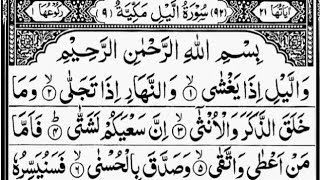 اٰيَاتُهَا ٢١ (٩٢) سُوْرَةُ الَّيْلِ مَكِّيَّةٌ (٩) رُكُوْعُهَا ١
بِسْمِ اللّٰهِ الرَّحْمٰنِ الرَّحِيْمِ
وَالَّيْلِ اِذَا يَغْشٰى ۙ﴿۱﴾ وَالنَّهَارِ اِذَا تَجَلّٰى ۙ﴿۲﴾ وَمَا
خَلَقَ الذَّكَرَ وَالْاُنْثٰٓى ۙ﴿۳﴾ اِنَّ سَعْيَكُمْ لَشَتّٰى ؕ﴿۴﴾ فَاَمَّا
مَنْ اَعْطٰى وَاتَّقٰى ۙ﴿۵﴾ وَصَدَّقَ بِالْحُسْنٰى ۙ﴿۶﴾ فَسَنُيَسِّرُهٗ